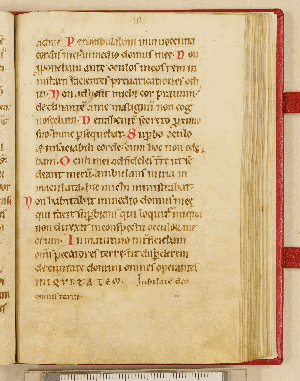 Perambulabam in innocentia
cordis mei in medio domus mee. Non
proponebam ante oculos meos rem in
iustam facientes prevaricationes odi
ui. Non adhesit michi cor pravum
declinante a me malignum non cog
noscebam. Detrahentem secreto proximo
suo hunc persequebar. Superbo oculo
et insaciabili corde cum hoc non ede
bam. Oculi mei ad fideles terre ut se
deant mecum ambulans in via in
maculata hic michi ministrabat.
Non habitabit in medio domus mee
qui facit superbiam qui loquitur iniqua
non direxit in conspectu oculorum me
orum. In matutino interficiebam
omnes peccatores terre ut disperderem
de civitate domini omnes operantes
INIQUITATEM. Iubilate deo
omnis terra